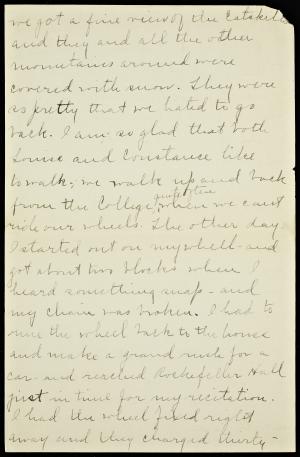 we got a fine view of the Catskills
and they and all the other
mountains around were
covered with snow. They were
so pretty that we hated to go
back. I am so glad that both
Louise and Constance like
to walk; we walk up and back
from the College, quite often
when we can't
ride our wheels. The other day
I started out on my wheel - and
got about two blocks when I
heard something snap - and
my chain was broken. I had to
run the wheel back to the house
and make a grand rush for a
car - and reached Rockefeller Hall
just in time for my recitation.
I had the wheel fixed right
away and they charged thirty -